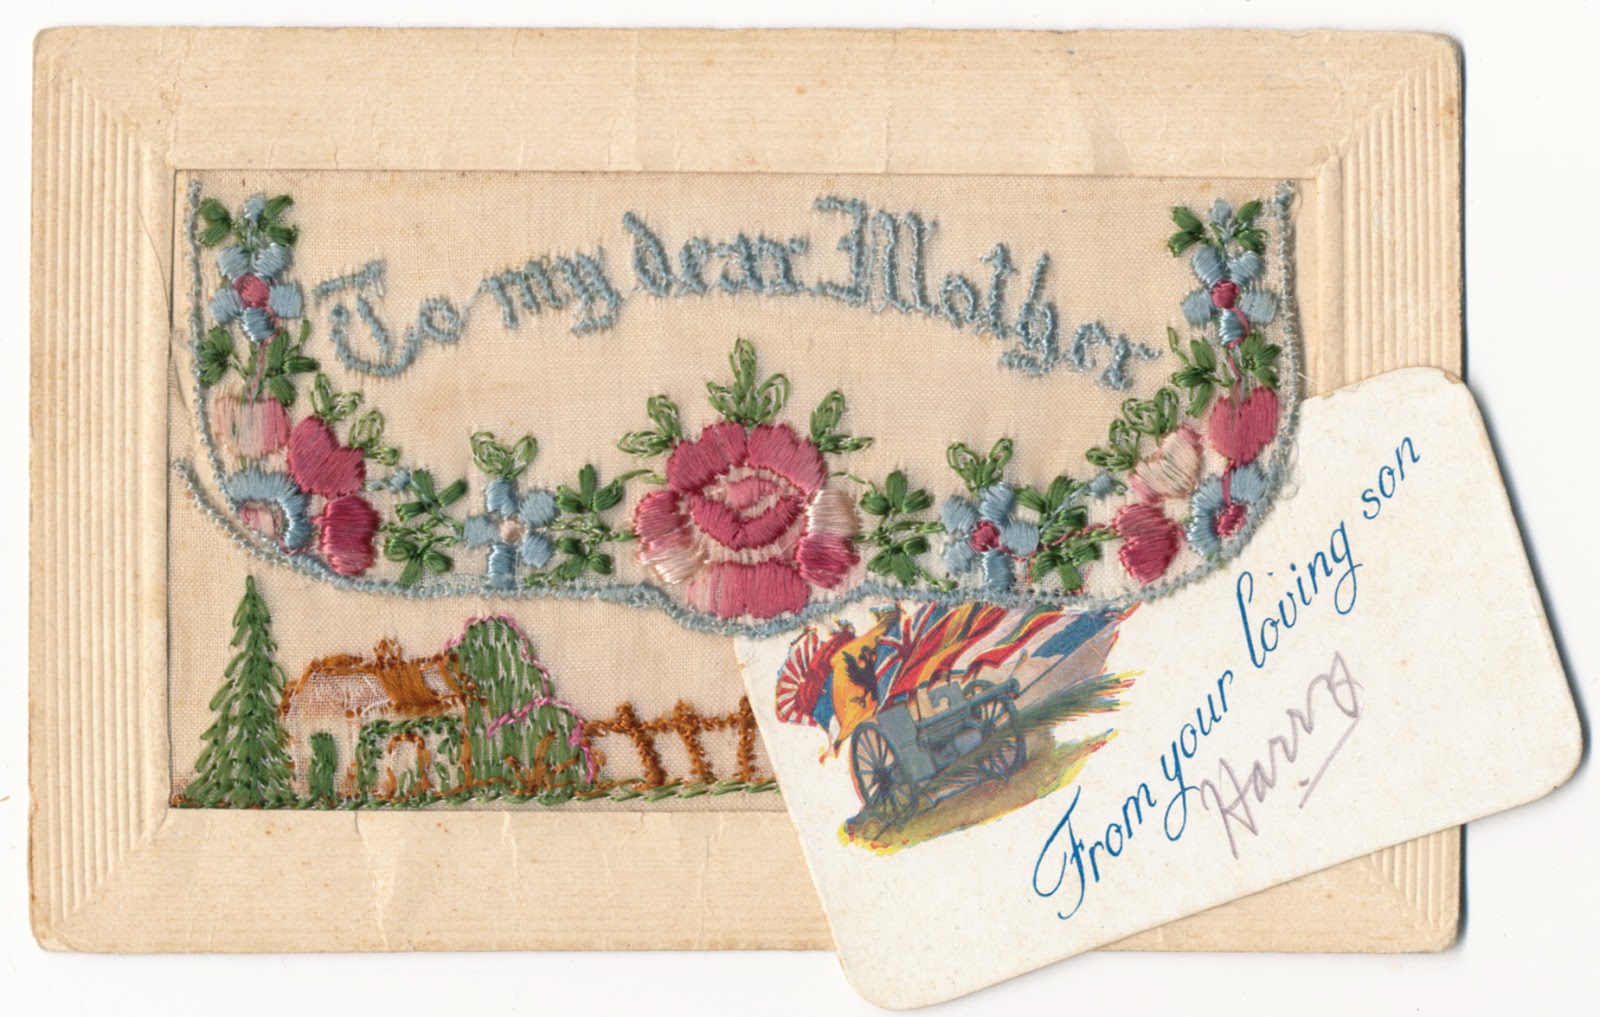 To my dear Mother
From your loving son
Harry